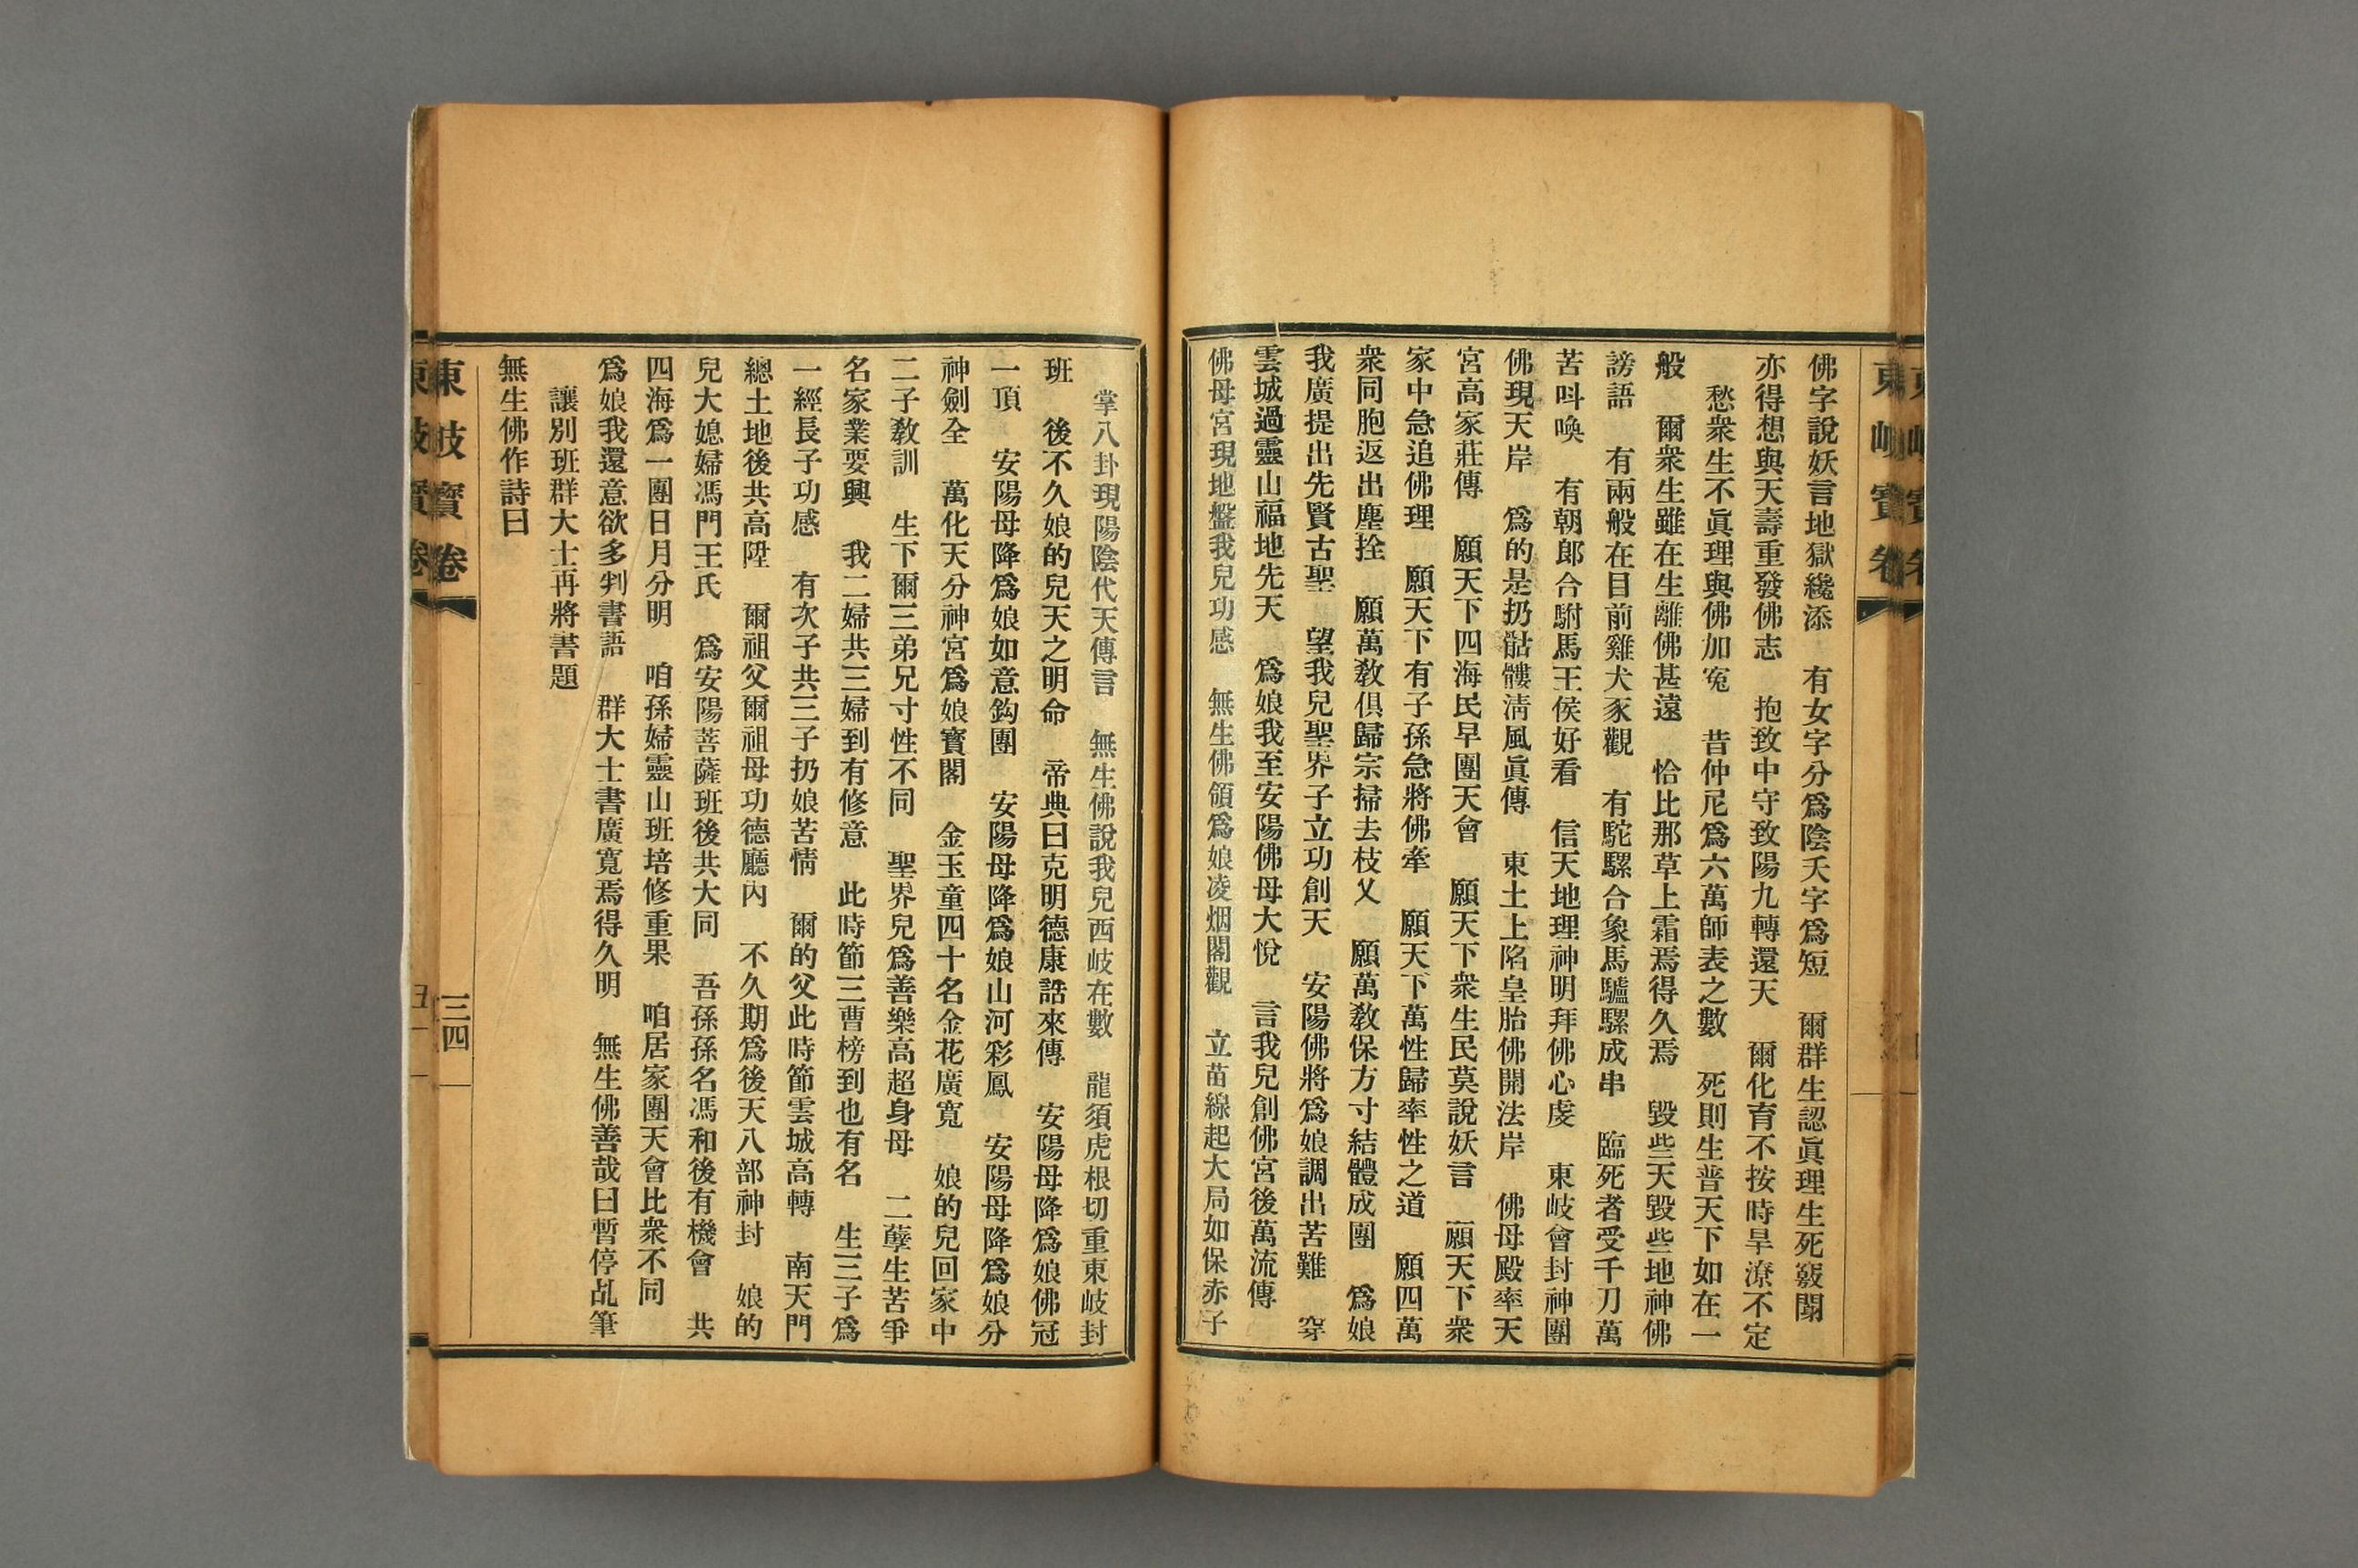 東岐寶卷
佛字說妖言地獄纔添　有女字分爲陰夭字爲短　爾群生認眞理生死竅閗
亦得想與天壽重發佛志　抱致中守致陽九轉還天　爾化育不按時旱潦不定
愁衆生不眞理與佛加寃　昔仲尼爲六萬師表之數　死則生普天下如在一
般　爾衆生雖在生離佛甚遠　恰比那草上霜焉得久焉　毀些天毀些地神佛
謗語　有兩般在目前雞犬豕觀　有駝騾合象馬驢騾成串　臨死者受千刀萬
苦呌喚　有朝郎合駙馬王侯好看　信天地理神明拜佛心虔　東岐會封神團
佛現天岸　爲的是扔骷髏淸風眞傳　東土上陷皇胎佛開法岸　佛母殿率天
宮高家莊傳　願天下四海民早團天會　願天下衆生民莫說妖言　願天下衆
家中急追佛理　願天下有子孫急將佛牽　願天下萬性歸率性之道　願四萬
衆同胞返出塵拴　願萬敎俱歸宗掃去枝乂　願萬敎保方寸結體成團　爲娘
我廣提出先賢古聖　望我兒聖界子立功創天　安陽佛將爲娘調出苦難　穿
雲城過靈山福地先天　爲娘我至安陽佛母大悅　言我兒創佛宮後萬流傳
佛母宮現地盤我兒功感　無生佛領爲娘凌烟閣觀　立苗線起大局如保赤子
掌八卦現陽陰代天傳言　無生佛說我兒西岐在數　龍須虎根切重東岐封
班　後不久娘的兒天之明命　帝典曰克明德康誥來傳　安陽母降爲娘佛冠
一頂　安陽母降爲娘如意鈎團　安陽母降爲娘山河彩鳳　安陽母降爲娘分
神劍全　萬化天分神宮爲娘寳閣　金玉童四十名金花廣寬　娘的兒回家中
二子敎訓　生下爾三弟兄寸性不同　聖界兒爲善樂高超身母　二孽生苦爭
名家業要興　我二婦共三婦到有修意　此時節三曹榜到也有名　生三子爲
一經長子功感　有次子共三子扔娘苦情　爾的父此時節雲城高轉　南天門
總土地後共高陞　爾祖父爾祖母功德廳內　不久期爲後天八部神封　娘的
兒大媳婦馮門王氏　爲安陽菩薩班後共大同　吾孫孫名馮和後有機會　共
四海爲一團日月分明　咱孫婦靈山班培修重果　咱居家團天會比衆不同
爲娘我還意欲多判書語　群大士書廣寬焉得久明　無生佛善哉曰暫停乩筆
讓別班群大士再將書題
無生佛作詩曰
東岐寶卷
三四